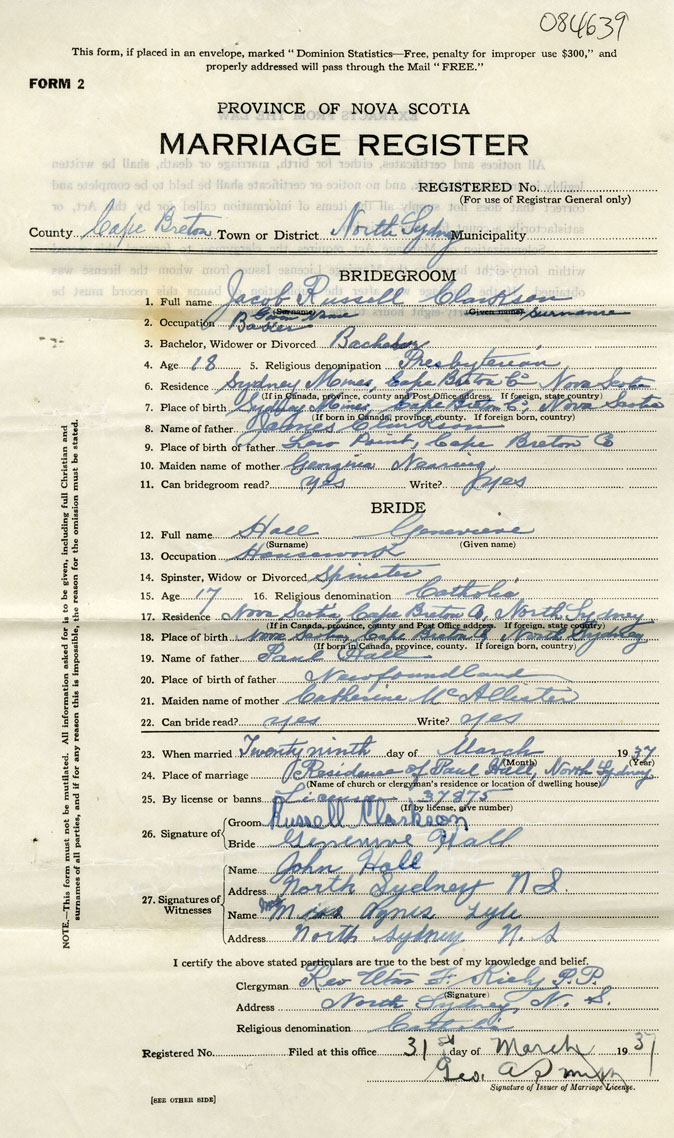 084639
This form, if placed in an envelope, marked "Dominion Statistics—Free, penalty for improper use $300," and
properly addressed will pass through the Mail "FREE."
FORM 2
PROVINCE OF NOVA SCOTIA
MARRIAGE REGISTER
REGISTERED No.
(For use of Registrar General only)
County Cape Breton Town or District North Sydney Municipality
BRIDEGROOM
1. Full name Jacob Russell Clarkson
(Surname) Given Name (Given name) Surname
2. Occupation Baker
3. Bachelor, Widower or Divorced Bachelor
4. Age 18 5. Religious denomination Presbyterian
6. Residence Sydney Mines, Cape Breton Co Nova Scotia
(If in Canada, province, county and Post Office address. If foreign, state country)
7. Place of birth Sydney Mines, Cape Breton Co, Nova Scotia
(If born in Canada, province, county. If foreign born, country)
8. Name of father James Clarkson
9. Place of birth of father Low Point, Cape Breton Co
10. Maiden name of mother Georgina Nearing
11. Can bridegroom read? yes Write? yes
BRIDE
12. Full name Hall Genevieve
(Surname) (Given name)
13. Occupation Housework
14. Spinster, Widow or Divorced Spinster
15. Age 17 16. Religious denomination Catholic
17. Residence Nova Scotia, Cape Breton Co, North Sydney
(If in Canada, province, county and Post Office address. If foreign, state country)
18. Place of birth Nova Scotia, Cape Breton Co North Sydney
(If born in Canada, province, county. If foreign born, country)
19. Name of father Paul Hall
20. Place of birth of father Newfoundland
21. Maiden name of mother Catherine McAllister
22. Can bride read? yes Write? yes
23. When married Twenty ninth day of March 1937
(Month) (Year)
24. Place of marriage Residence of Paul Hall, North Sydney
(Name of church or clergyman's residence or location of dwelling house)
25. By license or banns License 37875
(If by license, give number)
26. Signature of Groom Russell Clarkson
Bride Genevieve Hall
27. Signatures of Witnesses
Name John Hall
Address North Sydney N.S.
Name Miss Agnes Lyle
Address North Sydney N.S
I certify the above stated particulars are true to the best of my knowledge and belief.
Clergyman Rev Wm F. Kiely P.P.
(Signature)
Address North Sydney, N. S.
Religious denomination Catholic
Registered No. Filed at this office 31st day of March 1937
Geo. A Smith
Signature of Issuer of Marriage License.
[SEE OTHER SIDE]
NOTE.—This form must not be mutilated. All information asked for is to be given, including full Christian and
surnames of all parties, and if for any reason this is impossible, the reason for the omission must be stated.